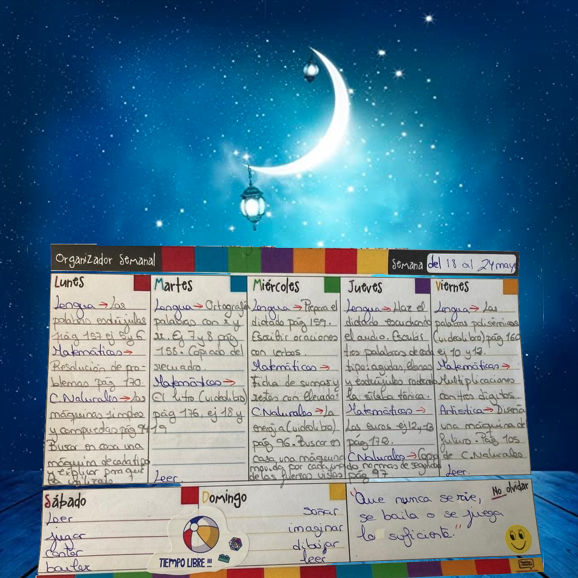 Organizador Semanal
Semana del 18 al 24 mayo
Lunes
Lengua → Las
palabras esdrújulas
pág 157 ej 5 y 6
Matemáticas →
Resolución de pro-
blemas pág 170.
C. Naturales → Las
máquinas simples
y compuestas pág 94
Buscar en casa una
máquina de cada tipo
y explicar para qué
Martes
Lengua → Ortografía
palabras con x y
Ej 7 y 8 pág
158. Copiado del
recuadro
Matemáticas →
El litro (vídeo libro)
pág 176, ej 18 y
19
Leer.
Miércoles
Lengua → Prepara el
dictado pág 159.
Escribir oraciones
con verbos.
Matemáticas →
Ficha de sumas y
restas con llevada
C. Naturales → La
energía (vídeo libro)
pág 96. Buscar en
casa una máquina
movida por cada una
de las fuerzas vistas
Jueves
Lengua → Haz el
dictado escuchando
el audio. Escribe
tres palabras de cada
tipo: agudas, llanas
y esdrújulas rodeando
la sílaba tónica.
Matemáticas →
Los euros ej 12 y 13
pág 172.
C. Naturales → Copia
normas de seguridad
pág 97
Viernes
Lengua → Las
palabras polisémicas
(vídeo libro) pág 160
ej 10 y 12.
Matemáticas →
Multiplicaciones
con tres dígitos
Artística → Diseña
una máquina del
futuro. Pág 105
de C. Naturales.
Leer
Sábado
Leer
jugar
cantar
bailar
TIEMPO LIBRE!!!
Domingo
Soñar
imaginar
dibujar
leer
No olvidar
"Que nunca se ríe,
se baila o se juega
lo suficiente"